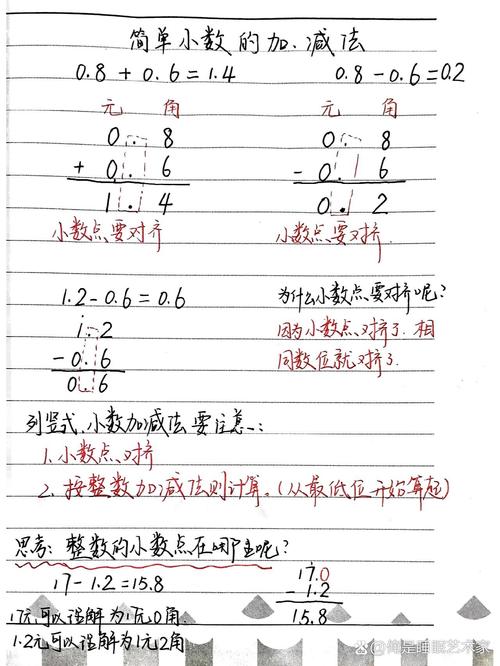 简单小数的加、减法
0.8+0.6=1.4
0.8-0.6=0.2
元 角
0.8
+ 0.6
1.4
小数点要对齐
元 角
0.8
- 0.6
0.2
小数点要对齐.
1.2-0.6=0.6
1.2
-0.6
0.6
为什么小数点要对齐呢?
因为小数点对齐了.相
同数位就对齐了.
列竖式.小数加减法要注意:
1.小数点对齐
2.按整数加减法则计算。(从最低位开始算起)
思考:整数的小数点在哪里呢?
17-1.2=15.8
17.0
- 1.2
15.8
17元可以理解为17元0角.
1.2元可以理解为1元2角
@俺是睡眠艺术家